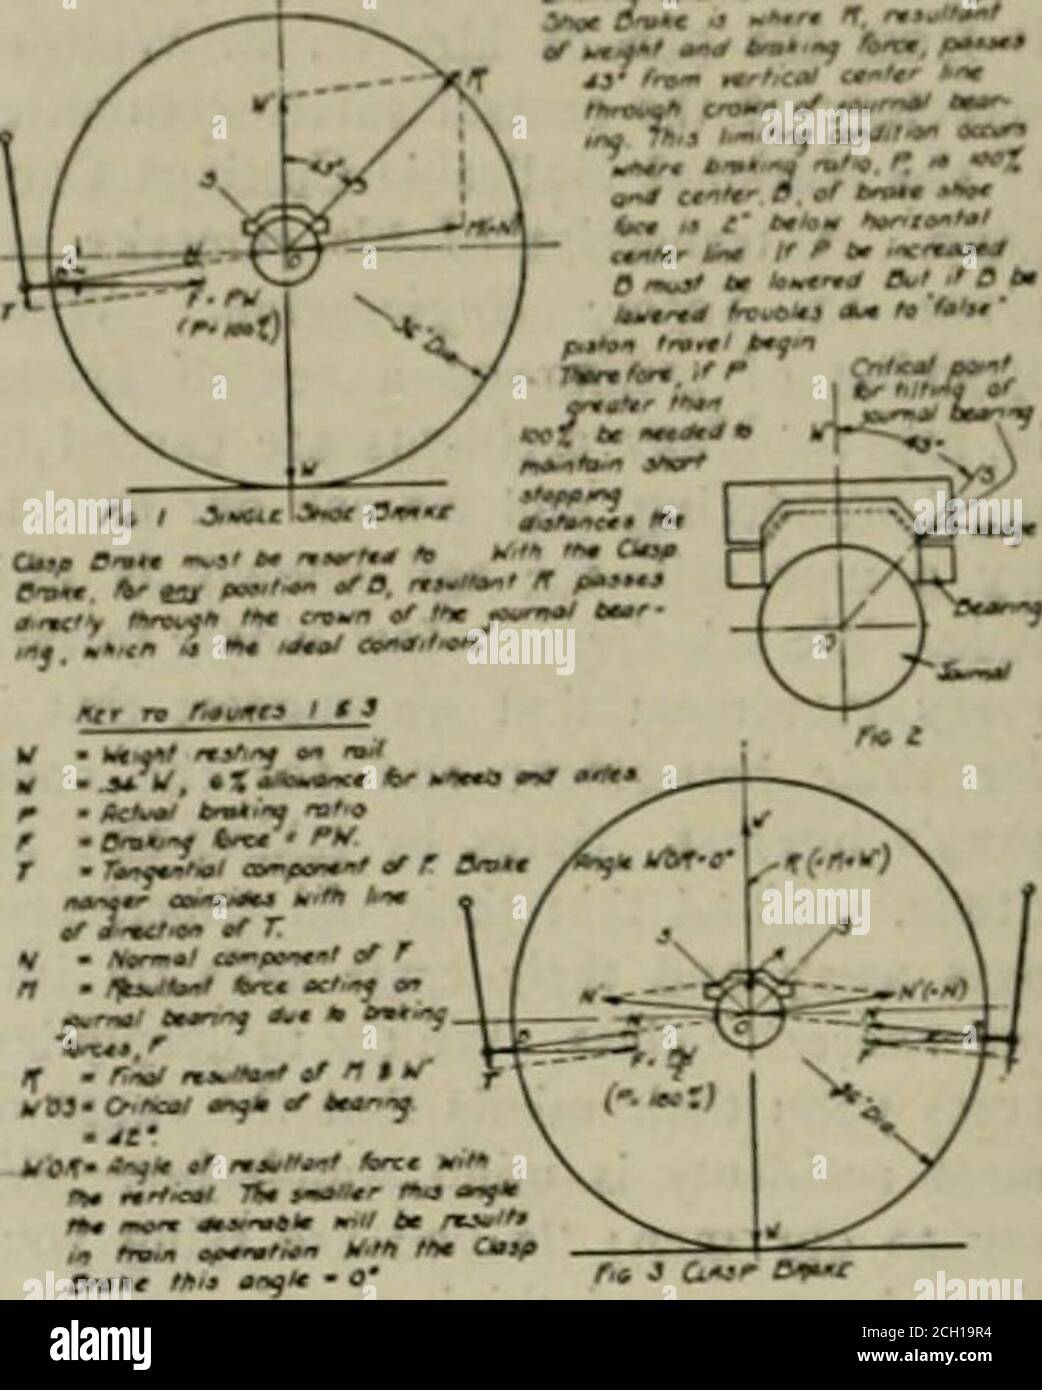 Shoe Brake is where R, resultant
of weight and braking force, passes
43° from vertical center line
through crown of journal bear-
ing. This limiting condition occurs
where braking ratio, P, is 100%
and center, B, of brake shoe
face is 2" below horizontal
center line If P be increased
B must be lowered But if B be
lowered troubles due to "false"
piston travel begin
Therefore, if P
greater than
100% be needed to
maintain short
stopping
distances the
Clasp Brake must be resorted to With the Clasp
Brake, for any position of B, resultant R passes
directly through the crown of the journal bear-
ing, which is the ideal condition,
W'
R
43°
S
S
M(=N)
O
B
N
T
F = PW
(P=100%)
36" Dia.
W
FIG 1 SINGLE SHOE BRAKE
Critical point
for tilting of
journal bearing
W'
43°
S
Bearing
O
Journal
FIG 2
KEY TO FIGURES 1 & 3
W = Weight resting on rail
W' = .94 W, 6% allowance for wheels and axles.
P = Actual braking ratio
F = Braking force = PW.
T = Tangential component of F. Brake
hanger coincides with line
of direction of T.
N = Normal component of F
M = Resultant force acting on
journal bearing due to braking
forces, F
R = Final resultant of M & W'
W'OS = Critical angle of bearing.
= 42°.
W'OR = Angle of resultant force with
the vertical. The smaller this angle
the more desirable will be results
in train operation With the Clasp
Brake this angle = 0°
W'
Angle W'OR=0°
R (=M+W')
S
S
N'
N'(=N)
O
B
N
F = PW/2
(P=100%)
T
F
T
36" Dia.
W
FIG 3 CLASP BRAKE
alamy
alamy
Image ID: 2CH19R4
www.alamy.com